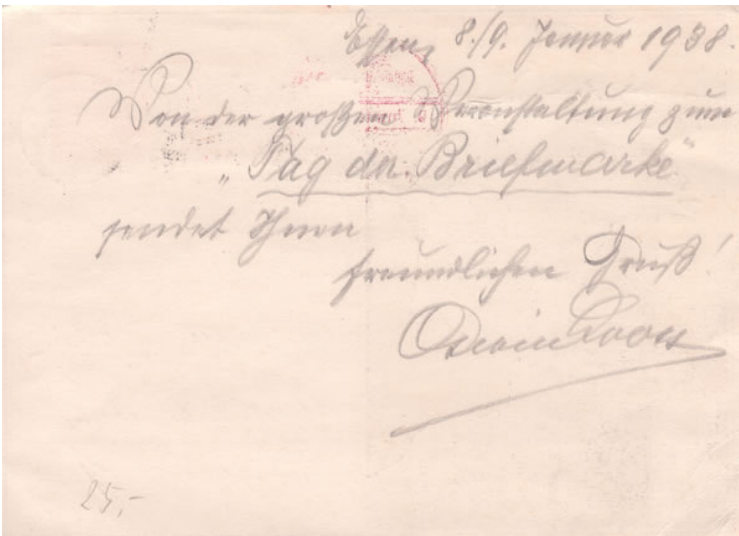 Essen, 8./9. Januar 1938.
Von der großen Veranstaltung zum
„Tag der Briefmarke“
sendet Ihnen
freundlichen Gruß!
25,-